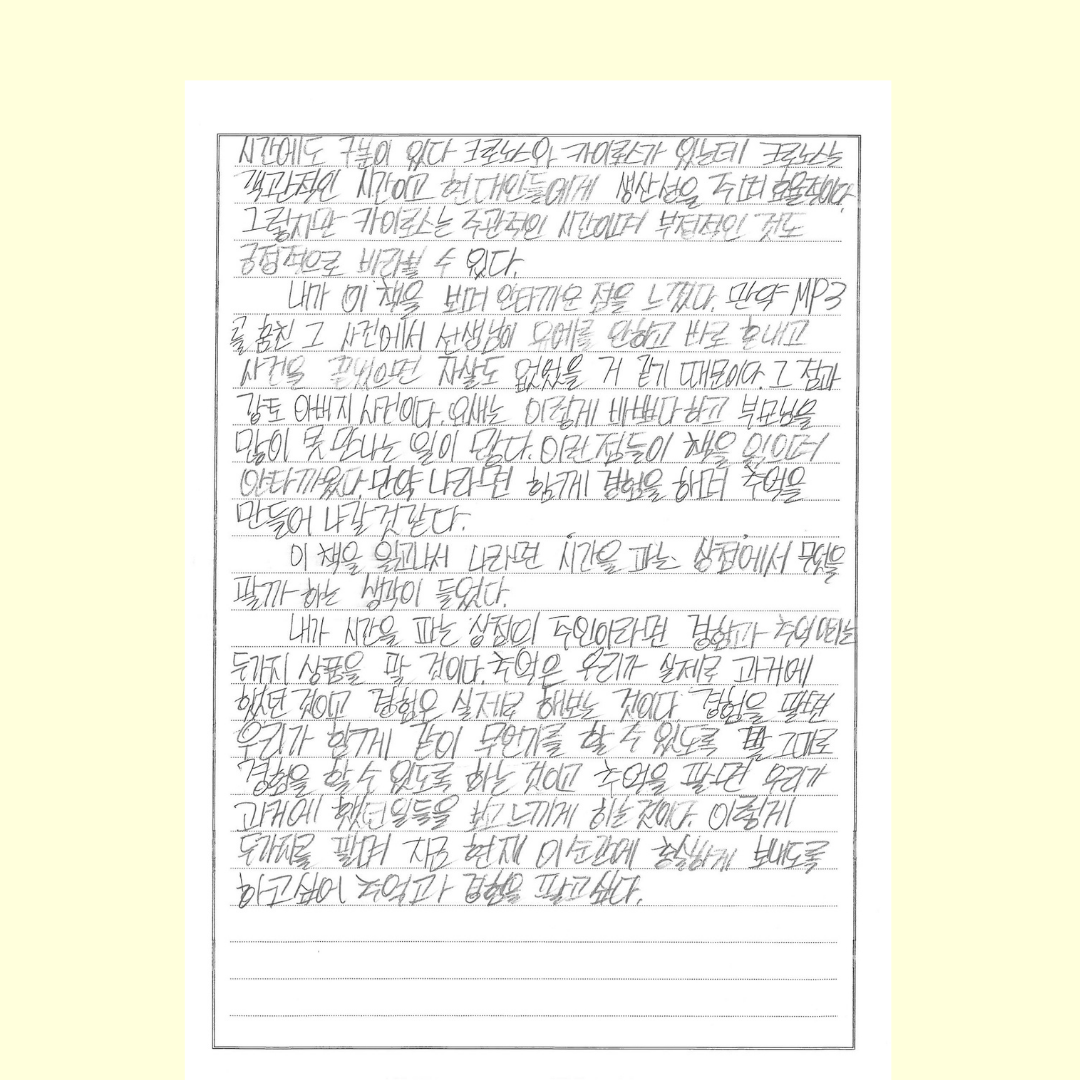 시간에도 구분이 있다 크로노스와 카이로스가 있는데 크로노스는
객관적인 시간이고 현대인들에게 생산성을 주며 효율적이다.
그렇지만 카이로스는 주관적인 시간이며 부정적인 것도
긍정적으로 바라볼 수 있다.
내가 이 책을 보며 안타까운 점을 느꼈다. 만약 MP3
를 훔친 그 사건에서 선생님이 안하고 바로 혼내고
사건을 끝냈으면 자살도 없었을 거 같기 때문이다. 그 점과
강토 아빠지 사건이다. 요새는 이렇게 바쁘다하고 부모님을
많이 못 만나는 일이 많다. 이런 점들이 책을 읽으며
안타까웠다. 만약 나라면 함께 경험을 하며 추억을
만들어 나갈 것 같다.
이 책을 읽고나서 나라면 '시간을 파는 상점'에서 무엇을
팔까 하는 생각이 들었다.
내가 시간을 파는 상점의 주인이라면 경험과 추억이라는
두가지 상품을 팔 것이다. 추억은 우리가 실제로 과거에
했던 것이고 경험은 실제로 해보는 것이다 경험을 팔면
우리가 함께 같이 무언가를 할 수 있도록 그대로
경험을 할 수 있도록 하는 것이고 추억을 팔면 우리가
과거에 했던 일들을 보고 느끼게 하는 것이다. 이렇게
두가지를 팔며 지금 현재 이순간에 충실하게 보내도록
하고싶어 추억과 경험을 팔고싶다.